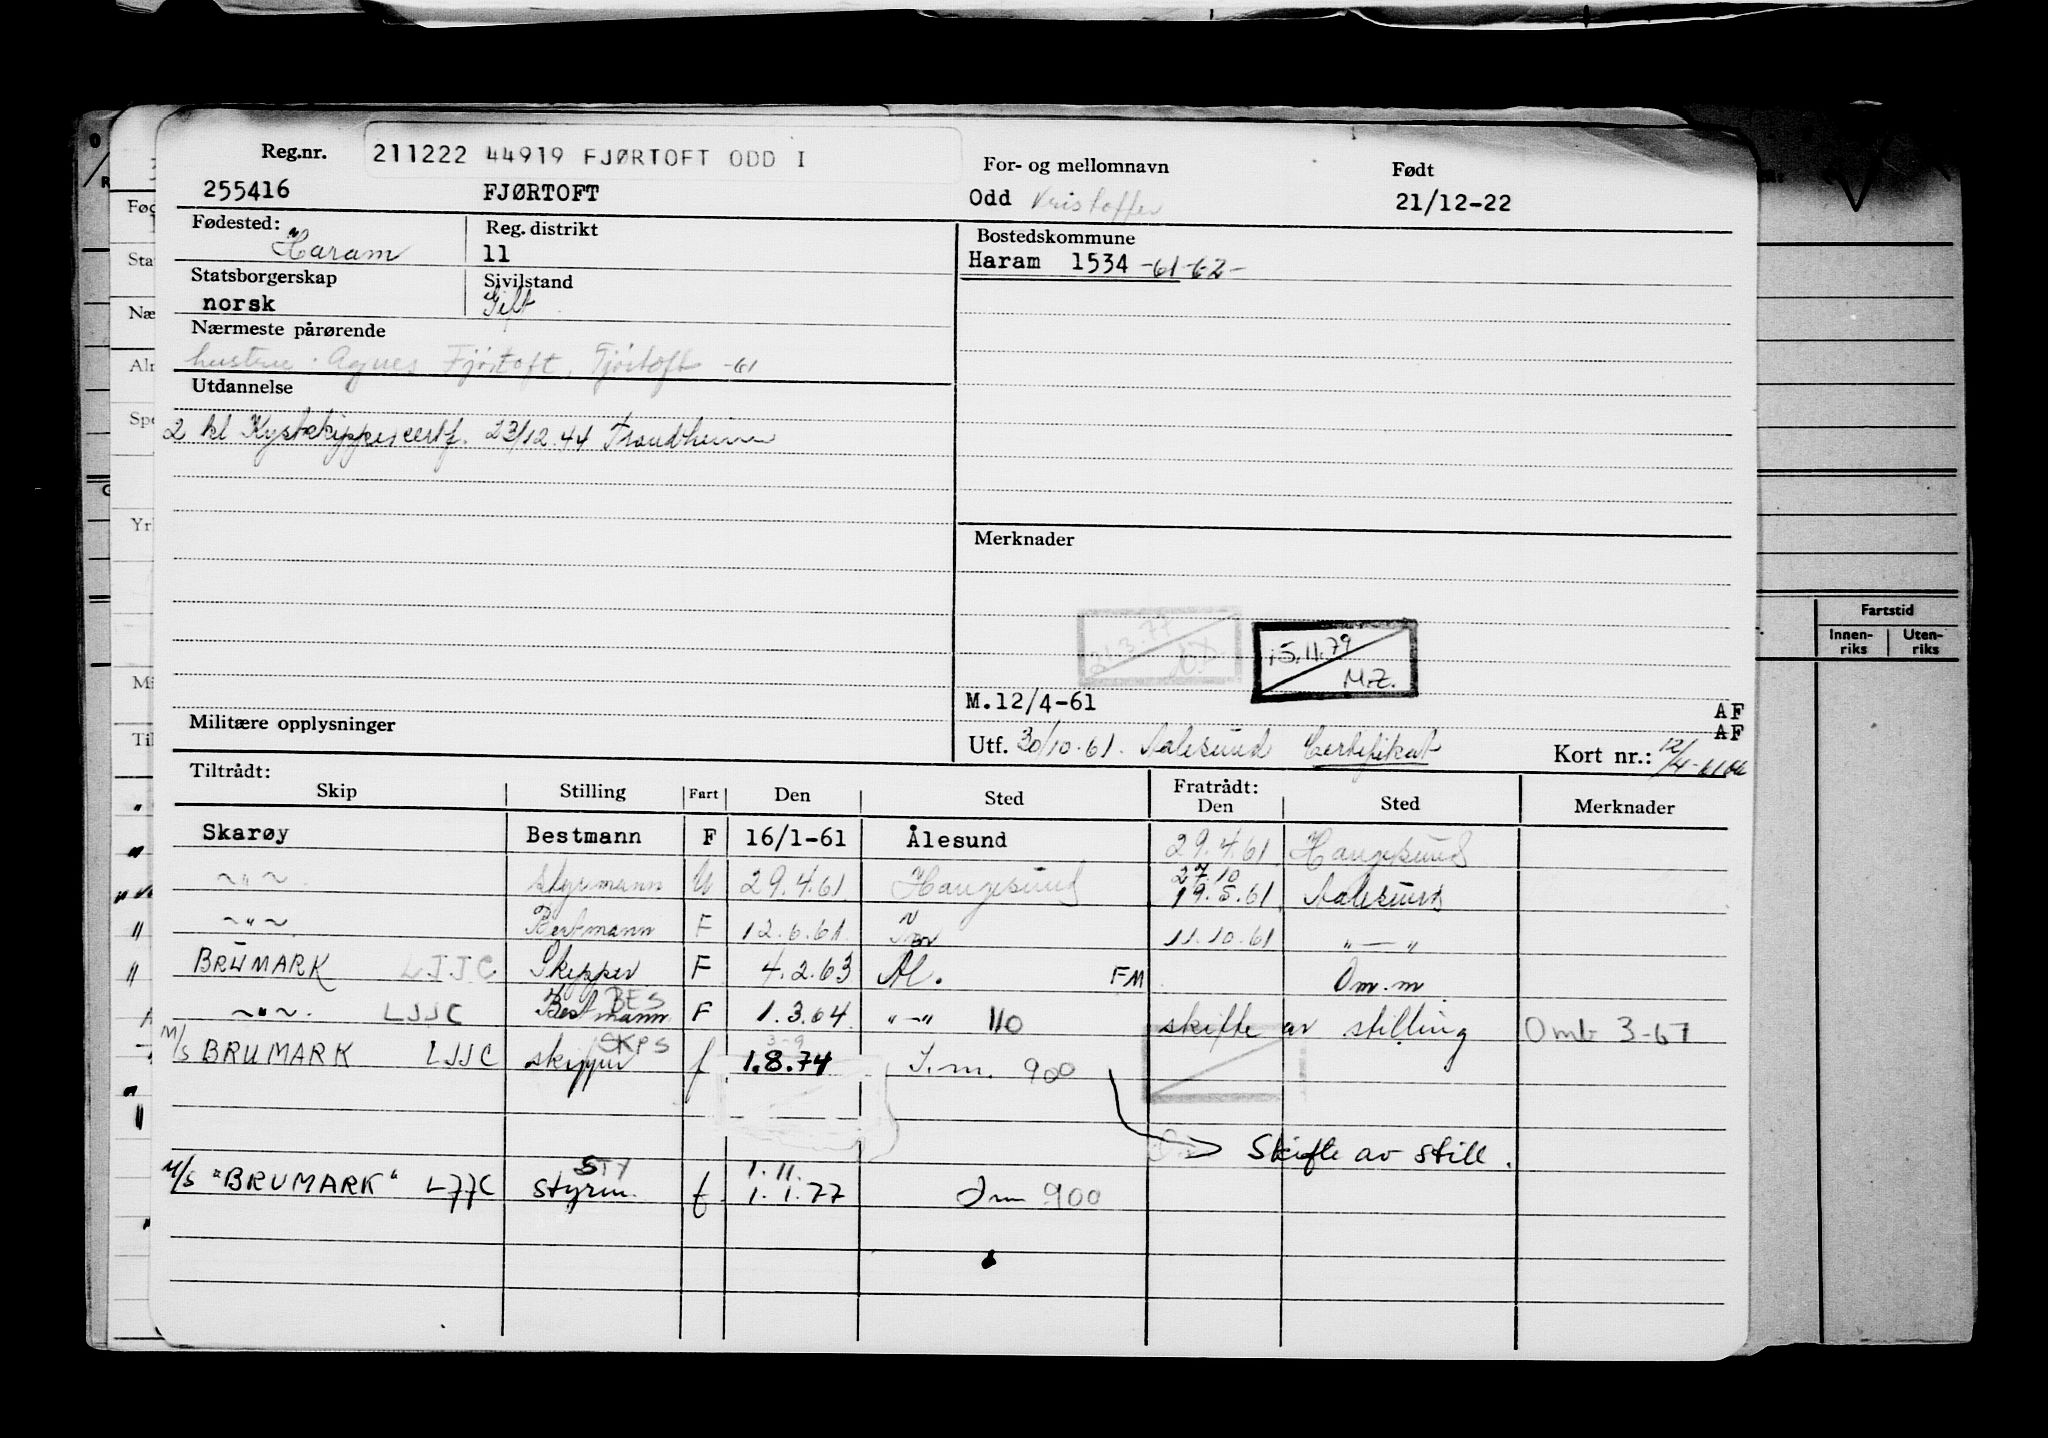 Reg.nr. 211222 44919 FJØRTOFT ODD I For- og mellomnavn Født
255416 FJØRTOFT Odd Kristoffer 21/12-22
Fødested: Haram Reg. distrikt 11 Bostedskommune
Haram 1534 -61-62-
Statsborgerskap norsk Sivilstand Gift
Nærmeste pårørende
hustru. Agnes Fjörtoft, Fjörtoft -61
Utdannelse
2 kl Kystskippercertf. 23/12.44 Trondheim
Merknader
21.3.77
15.11.79
M.Z.
M.12/4-61
AF
AF
Militære opplysninger
Utf. 30/10.61. Aalesund Certifikat Kort nr.: 12/4-61
Tiltrådt: Fratrådt:
Skip Stilling Fart Den Sted Den Sted Merknader
Skarøy Bestmann F 16/1-61 Ålesund 29.4.61 Haugesund
~"~ styrmann U 29.4.61 Haugesund 27.10 19.5.61 Aalesund
~"~ Bestmann F 12.6.61 11.10.61 "—"
BRUMARK LJJC Skipper F 4.2.63 Ål. FM Om.m
~"~. LJJC Bestmann BES F 1.3.64 "-" 110 skifte av stilling Omb 3-67
M/S BRUMARK LJJC skipper SKPS f 3-9 1.8.74 I.m. 900
Skifte av still.
M/S "BRUMARK" LJJC styrm. STY f 1.11. 1.1.77 Im 900
Fartstid
Innen-
riks
Uten-
riks